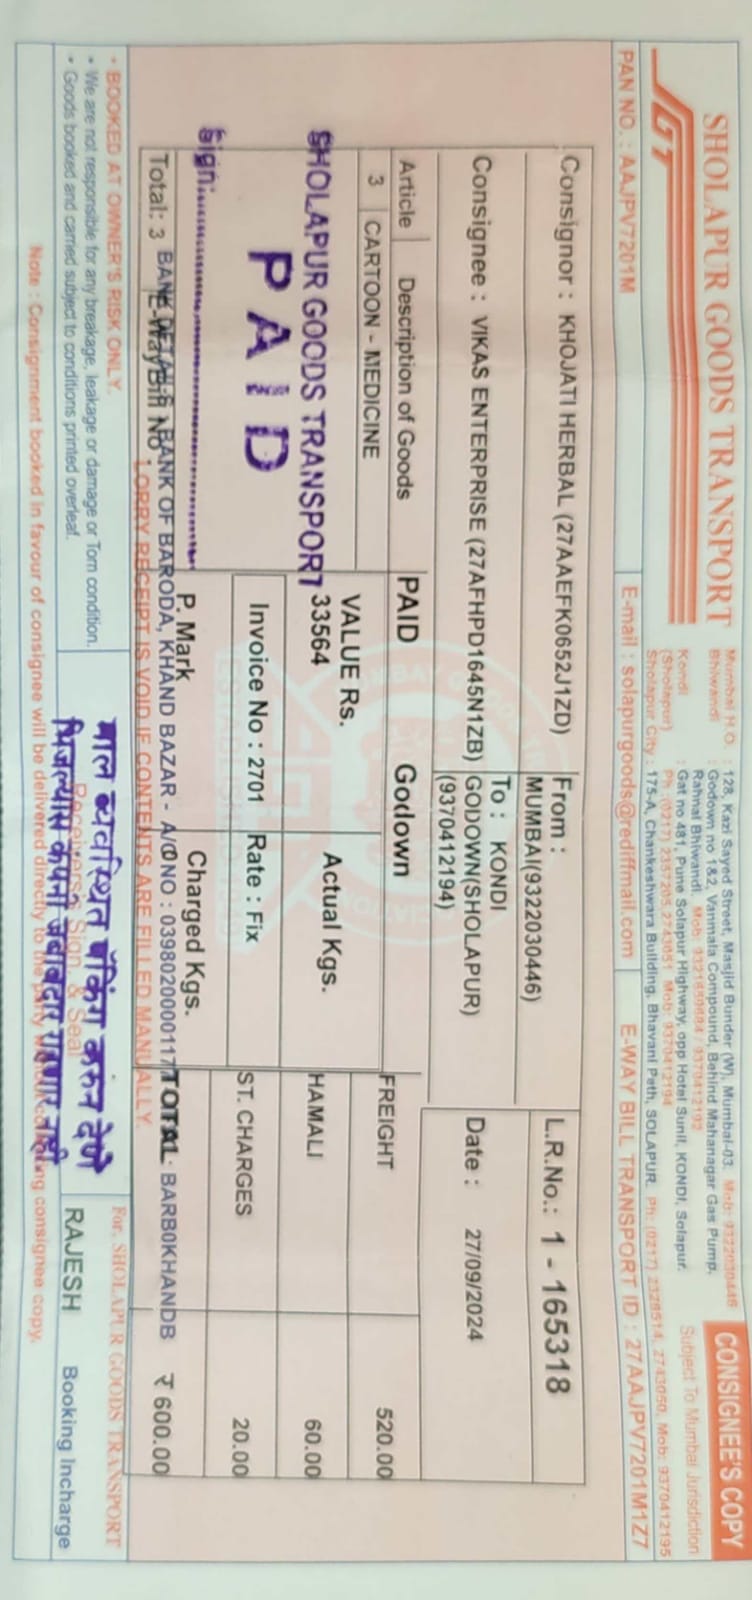 SHOLAPUR GOODS TRANSPORT
SGT
Mumbai H.O. : 128, Kazi Sayed Street, Masjid Bunder (W), Mumbai-03. Mob: 9322030446
Bhiwandi : Godown no 1&2, Vanmala Compound, Behind Mahanagar Gas Pump,
Rahnal Bhiwandi.
Kondi : Gat no 481, Pune Solapur Highway, opp Hotel Sunil, KONDI, Solapur.
(Sholapur) Ph: (0217) 2357205, 2743051 Mob: 9370412194
Sholapur City : 175-A, Chankeshwara Building, Bhavani Peth, SOLAPUR. Ph: (0217) 2328514, 2743050, Mob: 9370412195
CONSIGNEE'S COPY
Subject To Mumbai Jurisdiction
PAN NO. : AAJPV7201M
E-mail : solapurgoods@rediffmail.com
E-WAY BILL TRANSPORT ID : 27AAJPV7201M1Z7
Consignor : KHOJATI HERBAL (27AAEFK0652J1ZD)
From :
MUMBAI(9322030446)
L.R.No.: 1 - 165318
Consignee : VIKAS ENTERPRISE (27AFHPD1645N1ZB)
To : KONDI
GODOWN(SHOLAPUR)
(9370412194)
Date : 27/09/2024
Article Description of Goods PAID Godown
FREIGHT 520.00
3 CARTOON - MEDICINE
VALUE Rs.
33564
Actual Kgs.
HAMALI 60.00
SHOLAPUR GOODS TRANSPORT
PAID
Sign:
Invoice No : 2701 Rate : Fix
ST. CHARGES 20.00
P. Mark
Charged Kgs.
Total: 3 E-WayBill No
BANK DETAILS : BANK OF BARODA, KHAND BAZAR - A/C NO : 03980200001177
BARB0KHANDB
TOTAL ₹ 600.00
LORRY RECEIPT IS VOID IF CONTENTS ARE FILLED MANUALLY.
• BOOKED AT OWNER'S RISK ONLY.
• We are not responsible for any breakage, leakage or damage or Torn condition.
• Goods booked and carried subject to conditions printed overleaf.
माल व्यवस्थित पॅकिंग करुन देणे
भिजल्यास कंपनी जवाबदार राहणार नाही
Receiver's Sign. & Seal
For, SHOLAPUR GOODS TRANSPORT
RAJESH Booking Incharge
Note : Consignment booked in favour of consignee will be delivered directly to the party without collecting consignee copy.